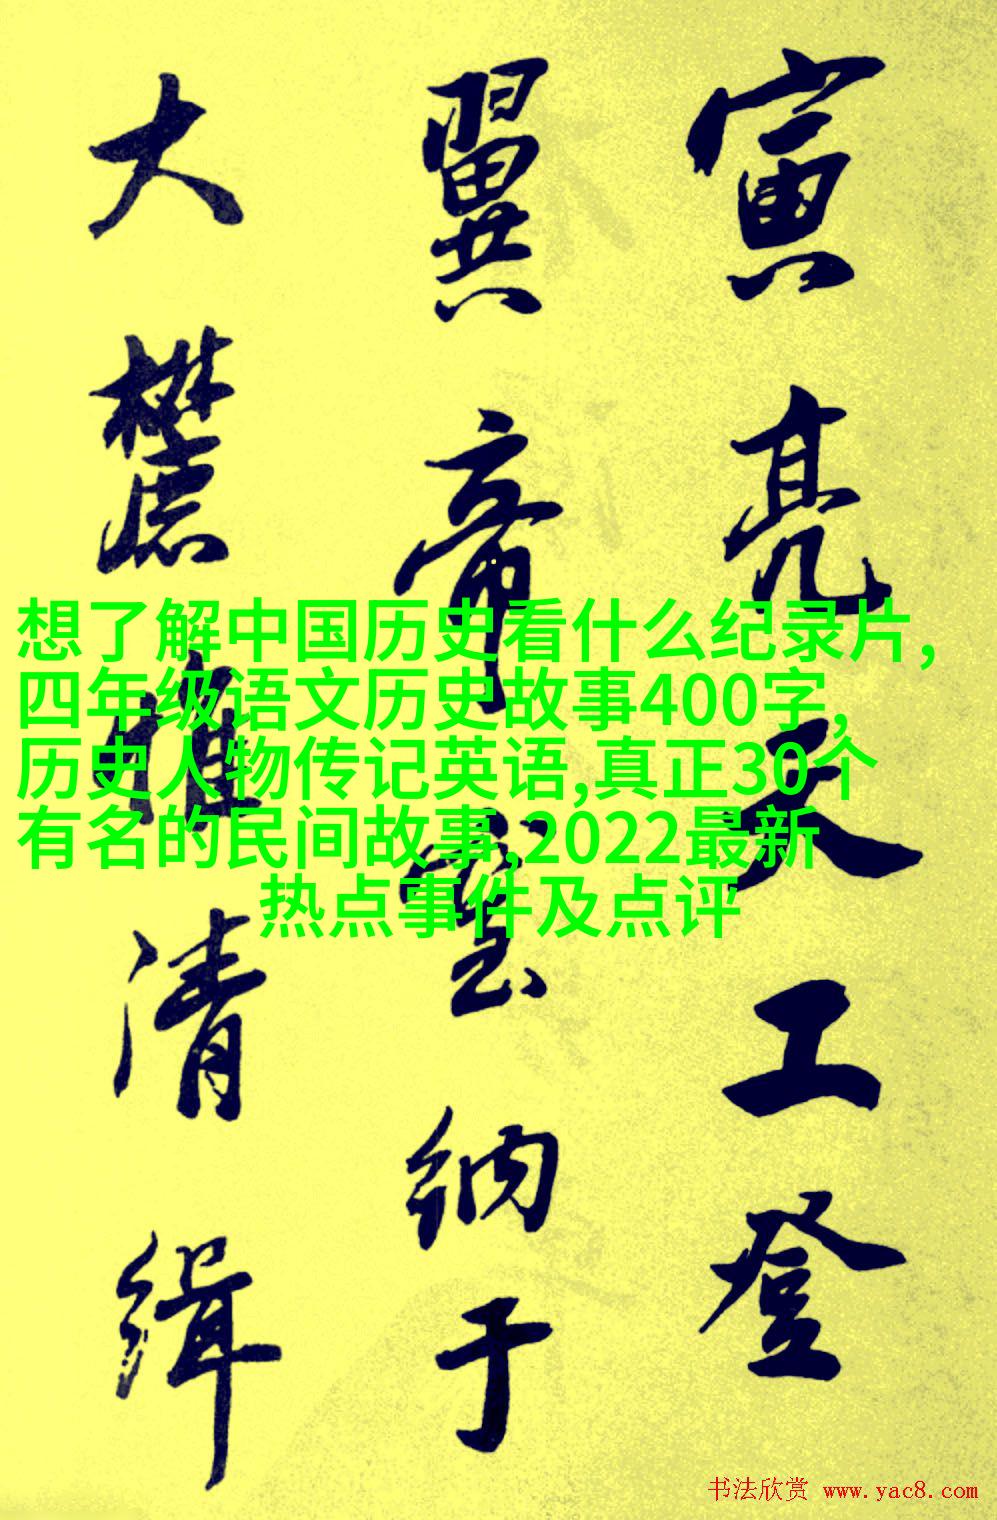 寅亮天工登
翼帝室纳于
大麓惟清缉
想了解中国历史看什么纪录片,
四年级语文历史故事400字,
历史人物传记英语,真正30个
有名的民间故事,2022最新
热点事件及点评
书法欣赏 www.yac8.com